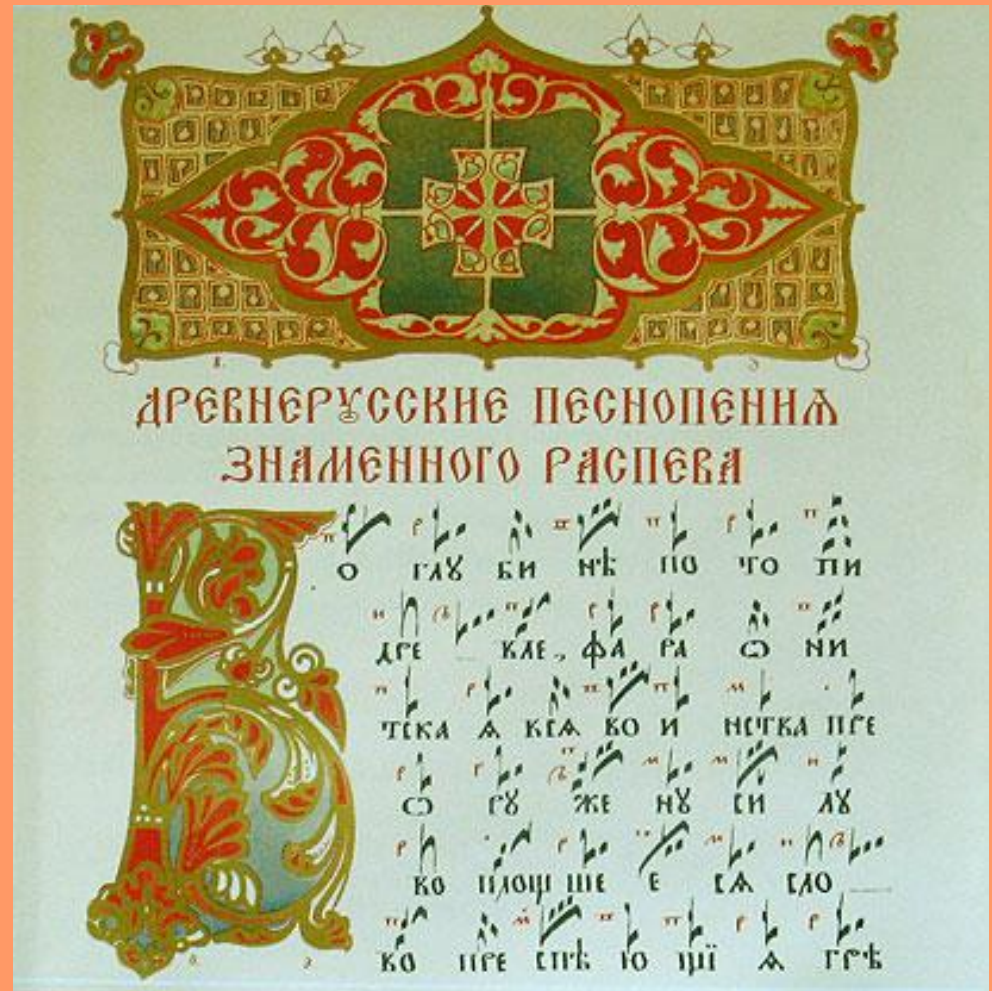 ДРЕВНЕРꙊССКИЕ ПЕСНОПЕНИѦ
ЗНАМЕННОГО РАСПЕВА
В О ГЛꙊ БИ НѢ ПО ТО ПИ
ДРЕ ВЛЕ, ФА РА Ѡ НИ
ТСКА Ѧ ВСѦ ВО И НСТВА ПРЕ
Ѡ РꙊ ЖЕ НꙊ СИ ЛꙊ
ВО ПЛОЩ ШЕ Е СѦ СЛО
ВО ПРЕ СПѢ Ю ЩЇ Ѧ ГРѢ